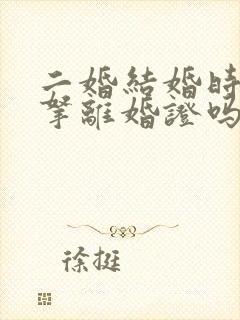 二婚結婚時
拏離婚證嗎
徐挺